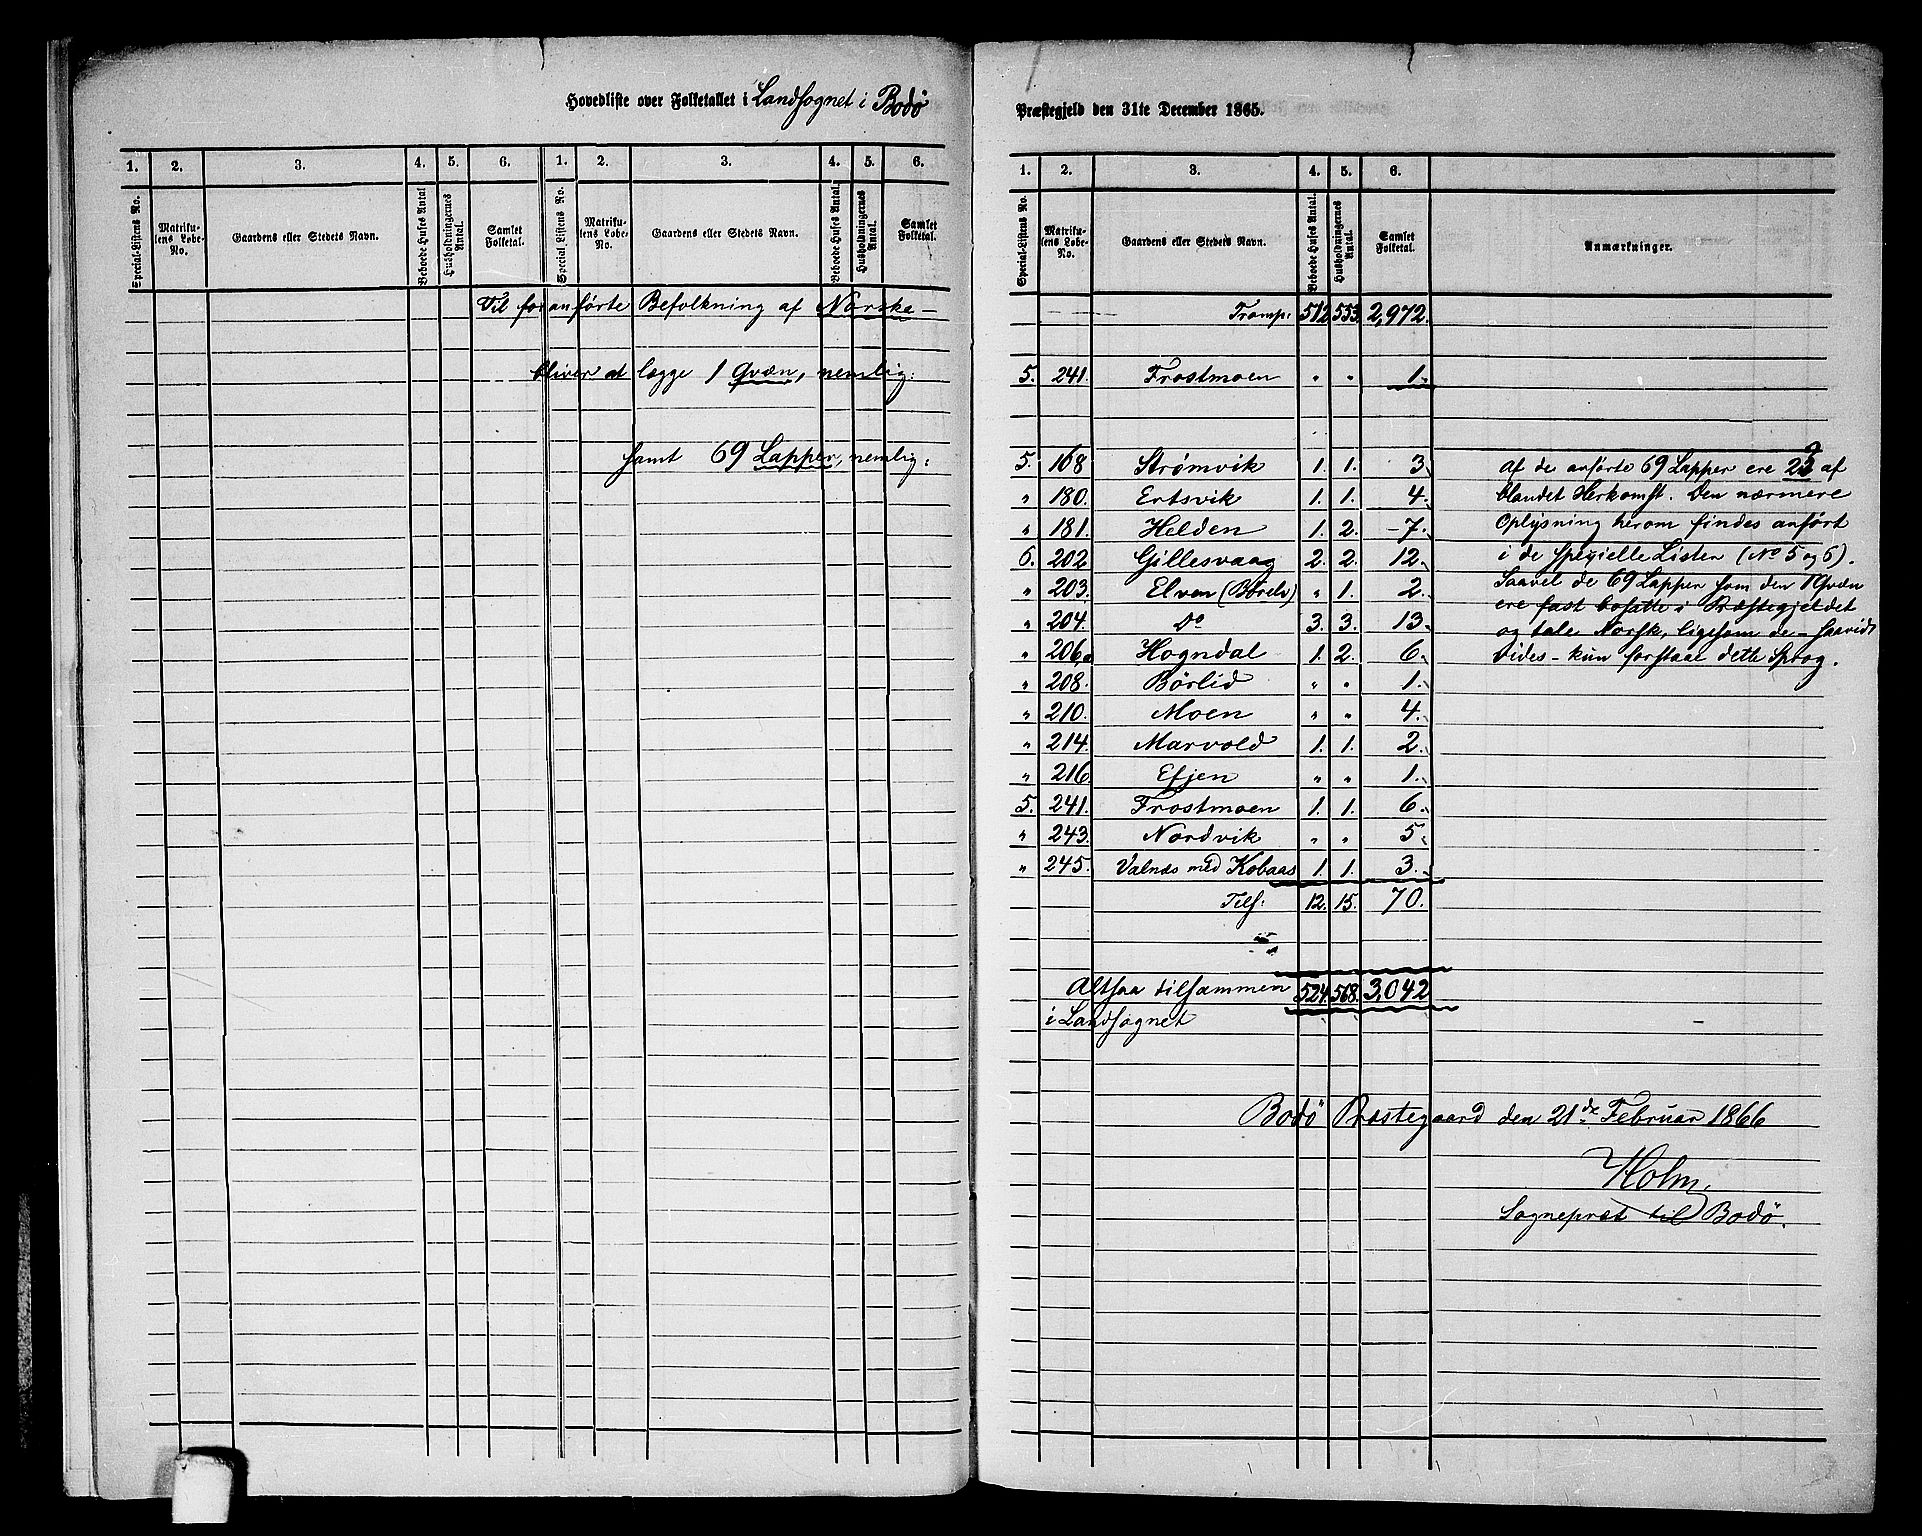 Hovedliste over Folketallet i Landsognet i Bodö
1. 2. 3. 4. 5. 6. 1. 2. 3. 4. 5. 6.
Special-Listens No. Matrikulens Løbe-No. Gaardens eller Stedets Navn. Beboede Huses Antal Husholdningernes Antal. Samlet Folketal. Special-Listens No. Matrikulens Løbe-No. Gaardens eller Stedets Navn. Beboede Huses Antal. Husholdningernes Antal. Samlet Folketal.
Til foranførte Befolkning af Norske –
bliver at lægge 1 Qvæn, nemlig:
samt 69 Lapper, nemlig:
Præstegjeld den 31te December 1865.
1. 2. 3. 4. 5. 6.
Special-Listens No. Matrikulens Løbe-No. Gaardens eller Stedets Navn. Beboede Huses Antal. Husholdningernes Antal. Samlet Folketal. Anmærkninger.
Transp: 512 553 2,972.
5. 241. Frostmoen " " 1.
5. 168 Strømvik 1. 1. 3.
" 180. Ertsvik 1. 1. 4.
" 181. Helden 1. 2. 7.
6. 202 Gillesvaag 2. 2. 12.
" 203. Elven (Børelv) " 1. 2.
" 204. Do 3. 3. 13.
" 206a Hogndal 1. 2. 6.
" 208. Börlid " " 1.
" 210. Moen " " 4.
" 214. Marvold 1. 1. 2.
" 216. Efjen " " 1.
5. 241. Frostmoen 1. 1. 6.
" 243. Nordvik " " 5.
" 245. Valnæs med Kobaas 1. 1. 3.
Tils: 12. 15. 70.
Altsaa tilsammen 524. 568. 3,042
i Landsognet
Af de anførte 69 Lapper ere 29 af
blandet Herkomst. Den nærmere
Oplysning herom findes anført
i de specielle Lister (No 5 og 6).
Saavel de 69 Lapper som den 1 Qvæn
ere fast bosatte i Præstegjeldet
og tale Norsk, ligesom de – saavidt
vides – kun forstaae dette Sprog.
Bodö Præstegaard den 21de Februar 1866
Holm
Sognepræst til Bodö.